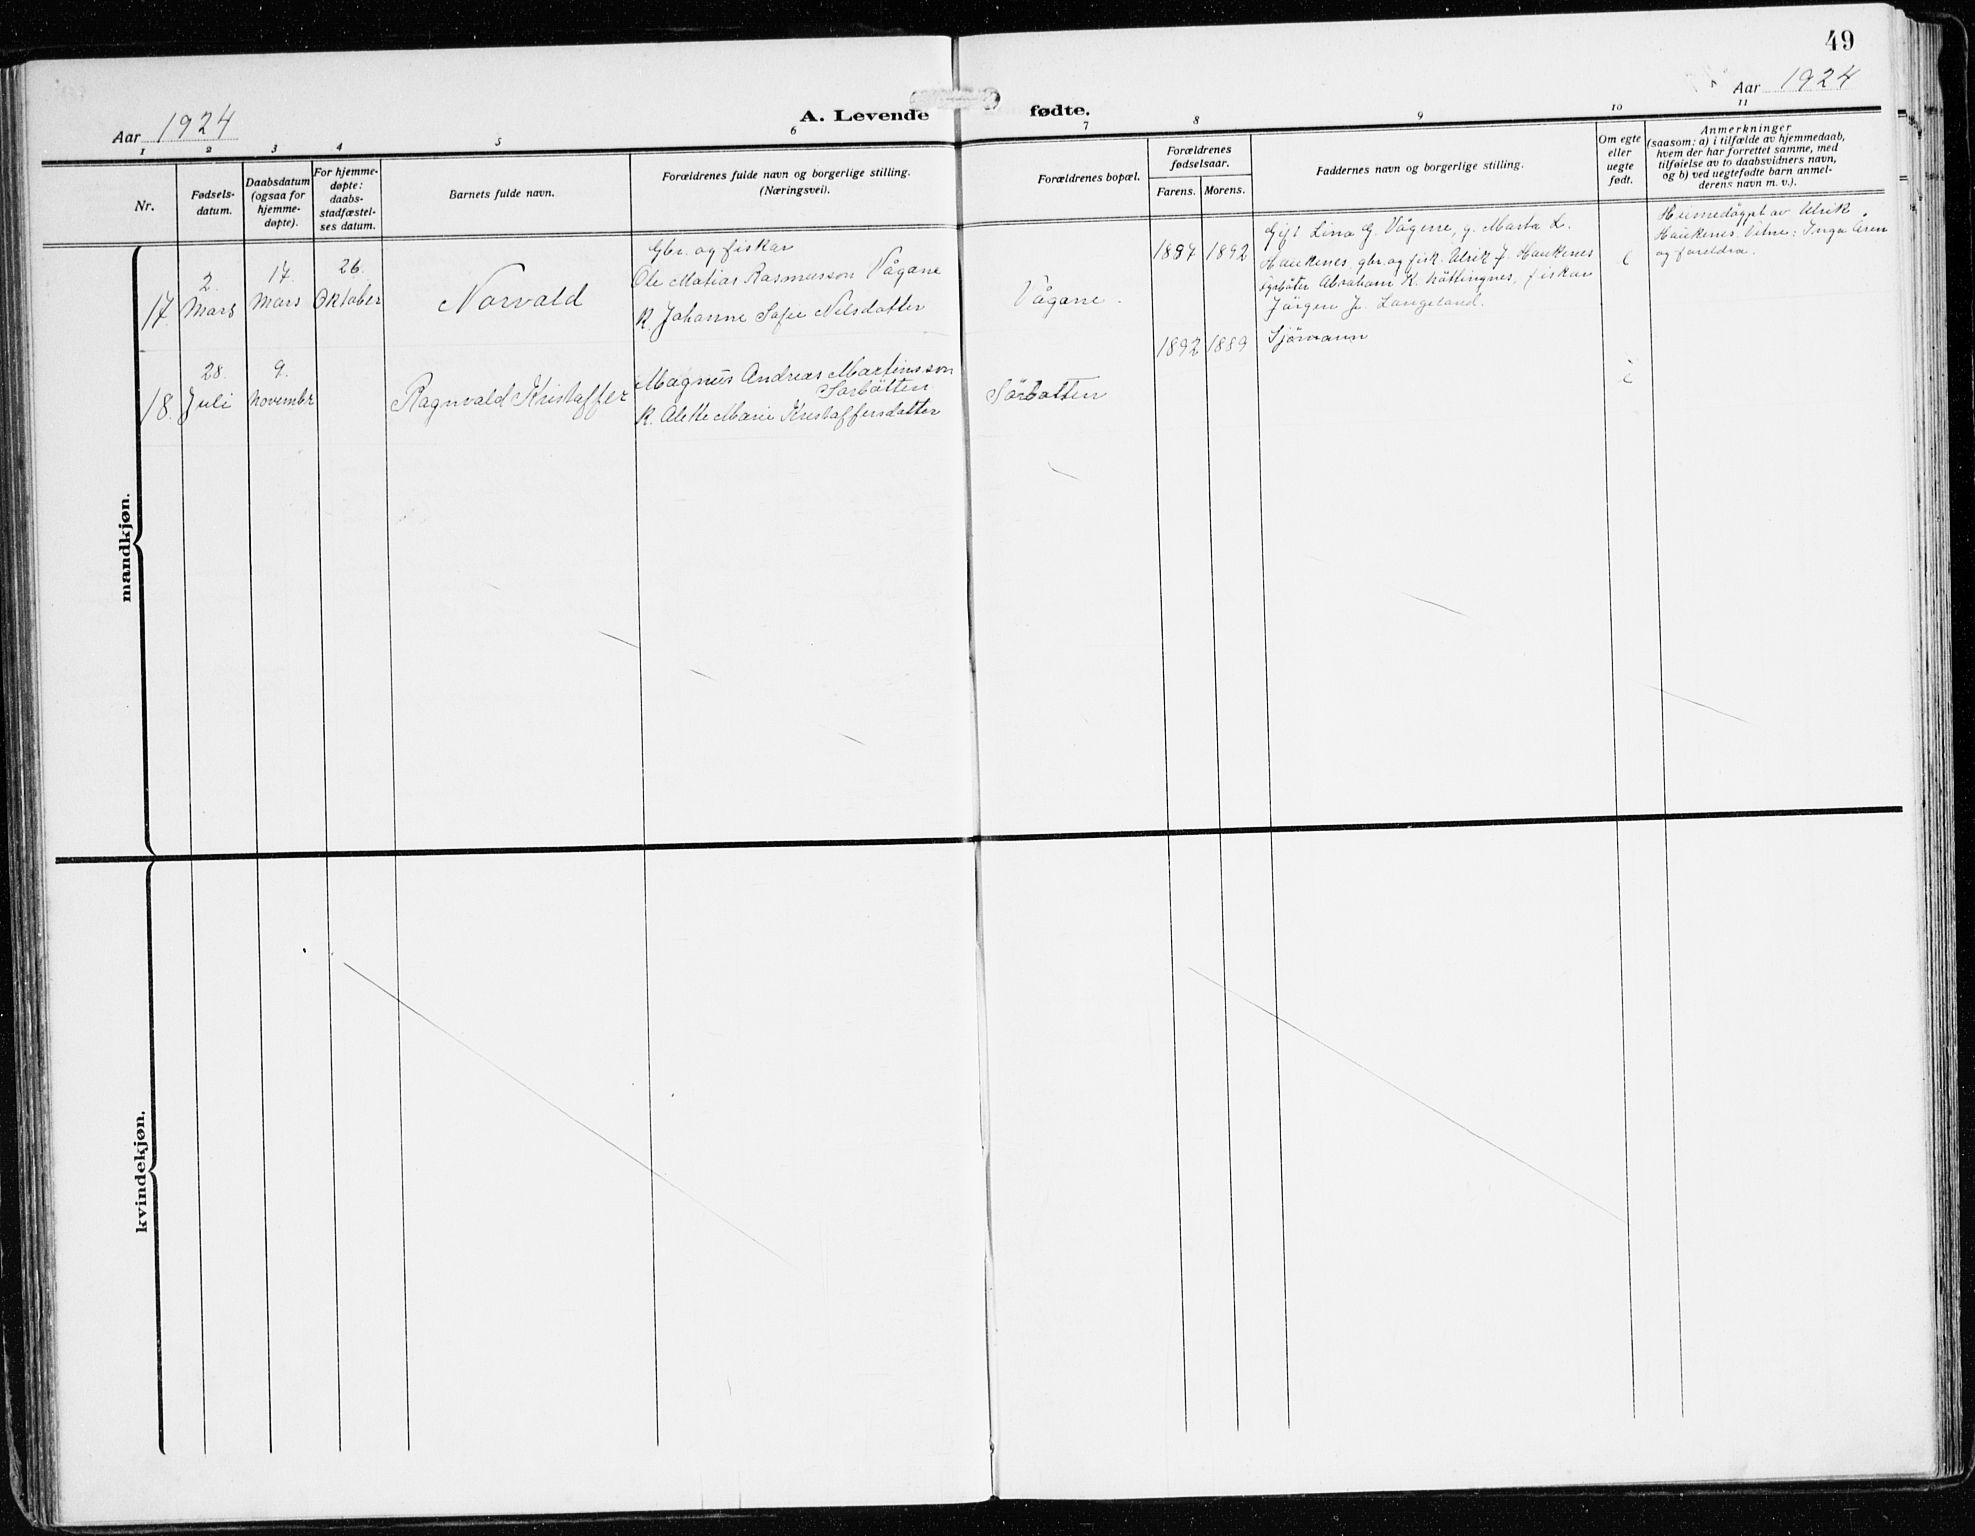 49
Aar 1924
A. Levende fødte.
Aar 1924
1 2 3 4 5 6 7 8 9 10 11
Nr.
Fødsels-
datum.
Daabsdatum
(ogsaa for
hjemme-
døpte).
For hjemme-
døpte:
daabs-
stadfæstel-
ses datum.
Barnets fulde navn.
Forældrenes fulde navn og borgerlige stilling.
(Næringsvei).
Forældrenes bopæl.
Forældrenes
fødselsaar.
Farens. Morens.
Faddernes navn og borgerlige stilling.
Om egte
eller
uegte
født.
Anmerkninger
(saasom: a) i tilfælde av hjemmedaab,
hvem der har forrettet samme, med
tilføielse av to daabsvidners navn,
og b) ved uegtefødte barn anmel-
derens navn m. v.).
mandkjøn.
17.
2.
Mars
17.
Mars
26.
Oktober
Norvald
Gbr. og fiskar
Ole Matias Rasmusson Vågane
K. Johanne Sofie Nilsdatter
Vågane.
1887 1892
Gift Lina G. Vågene, g. Marta L.
Haukenes, gbr. og fisk. Ulrik J. Haukenes
Abraham K. Nåttingnes, fiskar
Jörgen J. Langeland.
e
Heimedöypt av Ulrik
Haukenes. Vitne: Inga
og foreldra.
18.
28.
Juli
9.
Novembr
Ragnvald Kristaffer
Magnus Andreas Martinsson
Sörbotten
K. Alette Marie Kristaffersdatter
Sörbotten
1892 1889
Sjömann
e
kvindekjøn.